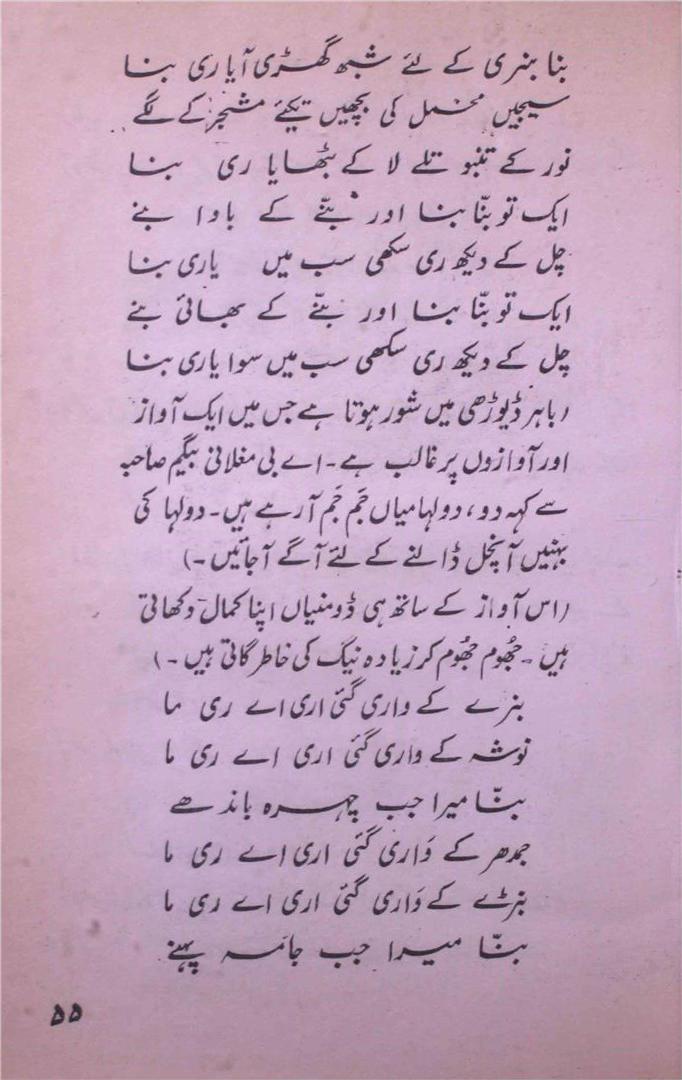 بنا بنری کے لئے شبھ گھڑی آیا ری بنا
سیجیں مخمل کی بچھیں تکیئے مشجر کے لگے
نور کے تنبو تلے لا کے بٹھایا ری بنا
ایک تو بنّا بنا اور بنّے کے باوا بنے
چل کے دیکھ ری سکھی سب میں یاری بنا
ایک تو بنّا بنا اور بنّے کے بھائی بنے
چل کے دیکھ ری سکھی سب میں سوا یاری بنا
(باہر ڈیوڑھی میں شور ہوتا ہے جس میں ایک آواز
اور آوازوں پر غالب ہے۔ اے بی مغلانی بیگم صاحبہ
سے کہہ دو، دولہا میاں جَم جَم آ رہے ہیں۔ دولہا کی
بہنیں آنچل ڈالنے کے لئے آگے آ جائیں۔)
(اس آواز کے ساتھ ہی ڈومنیاں اپنا کمال دکھاتی
ہیں۔ جھُوم جھُوم کر زیادہ نیگ کی خاطر گاتی ہیں۔)
بنرے کے واری گئی اری اے ری ما
نوشہ کے واری گئی اری اے ری ما
بنّا میرا جب چہرہ باندھے
جمدھر کے وَاری گئی اری اے ری ما
بنڑے کے وَاری گئی اری اے ری ما
بنّا میرا جب جامہ پہنے
۵۵